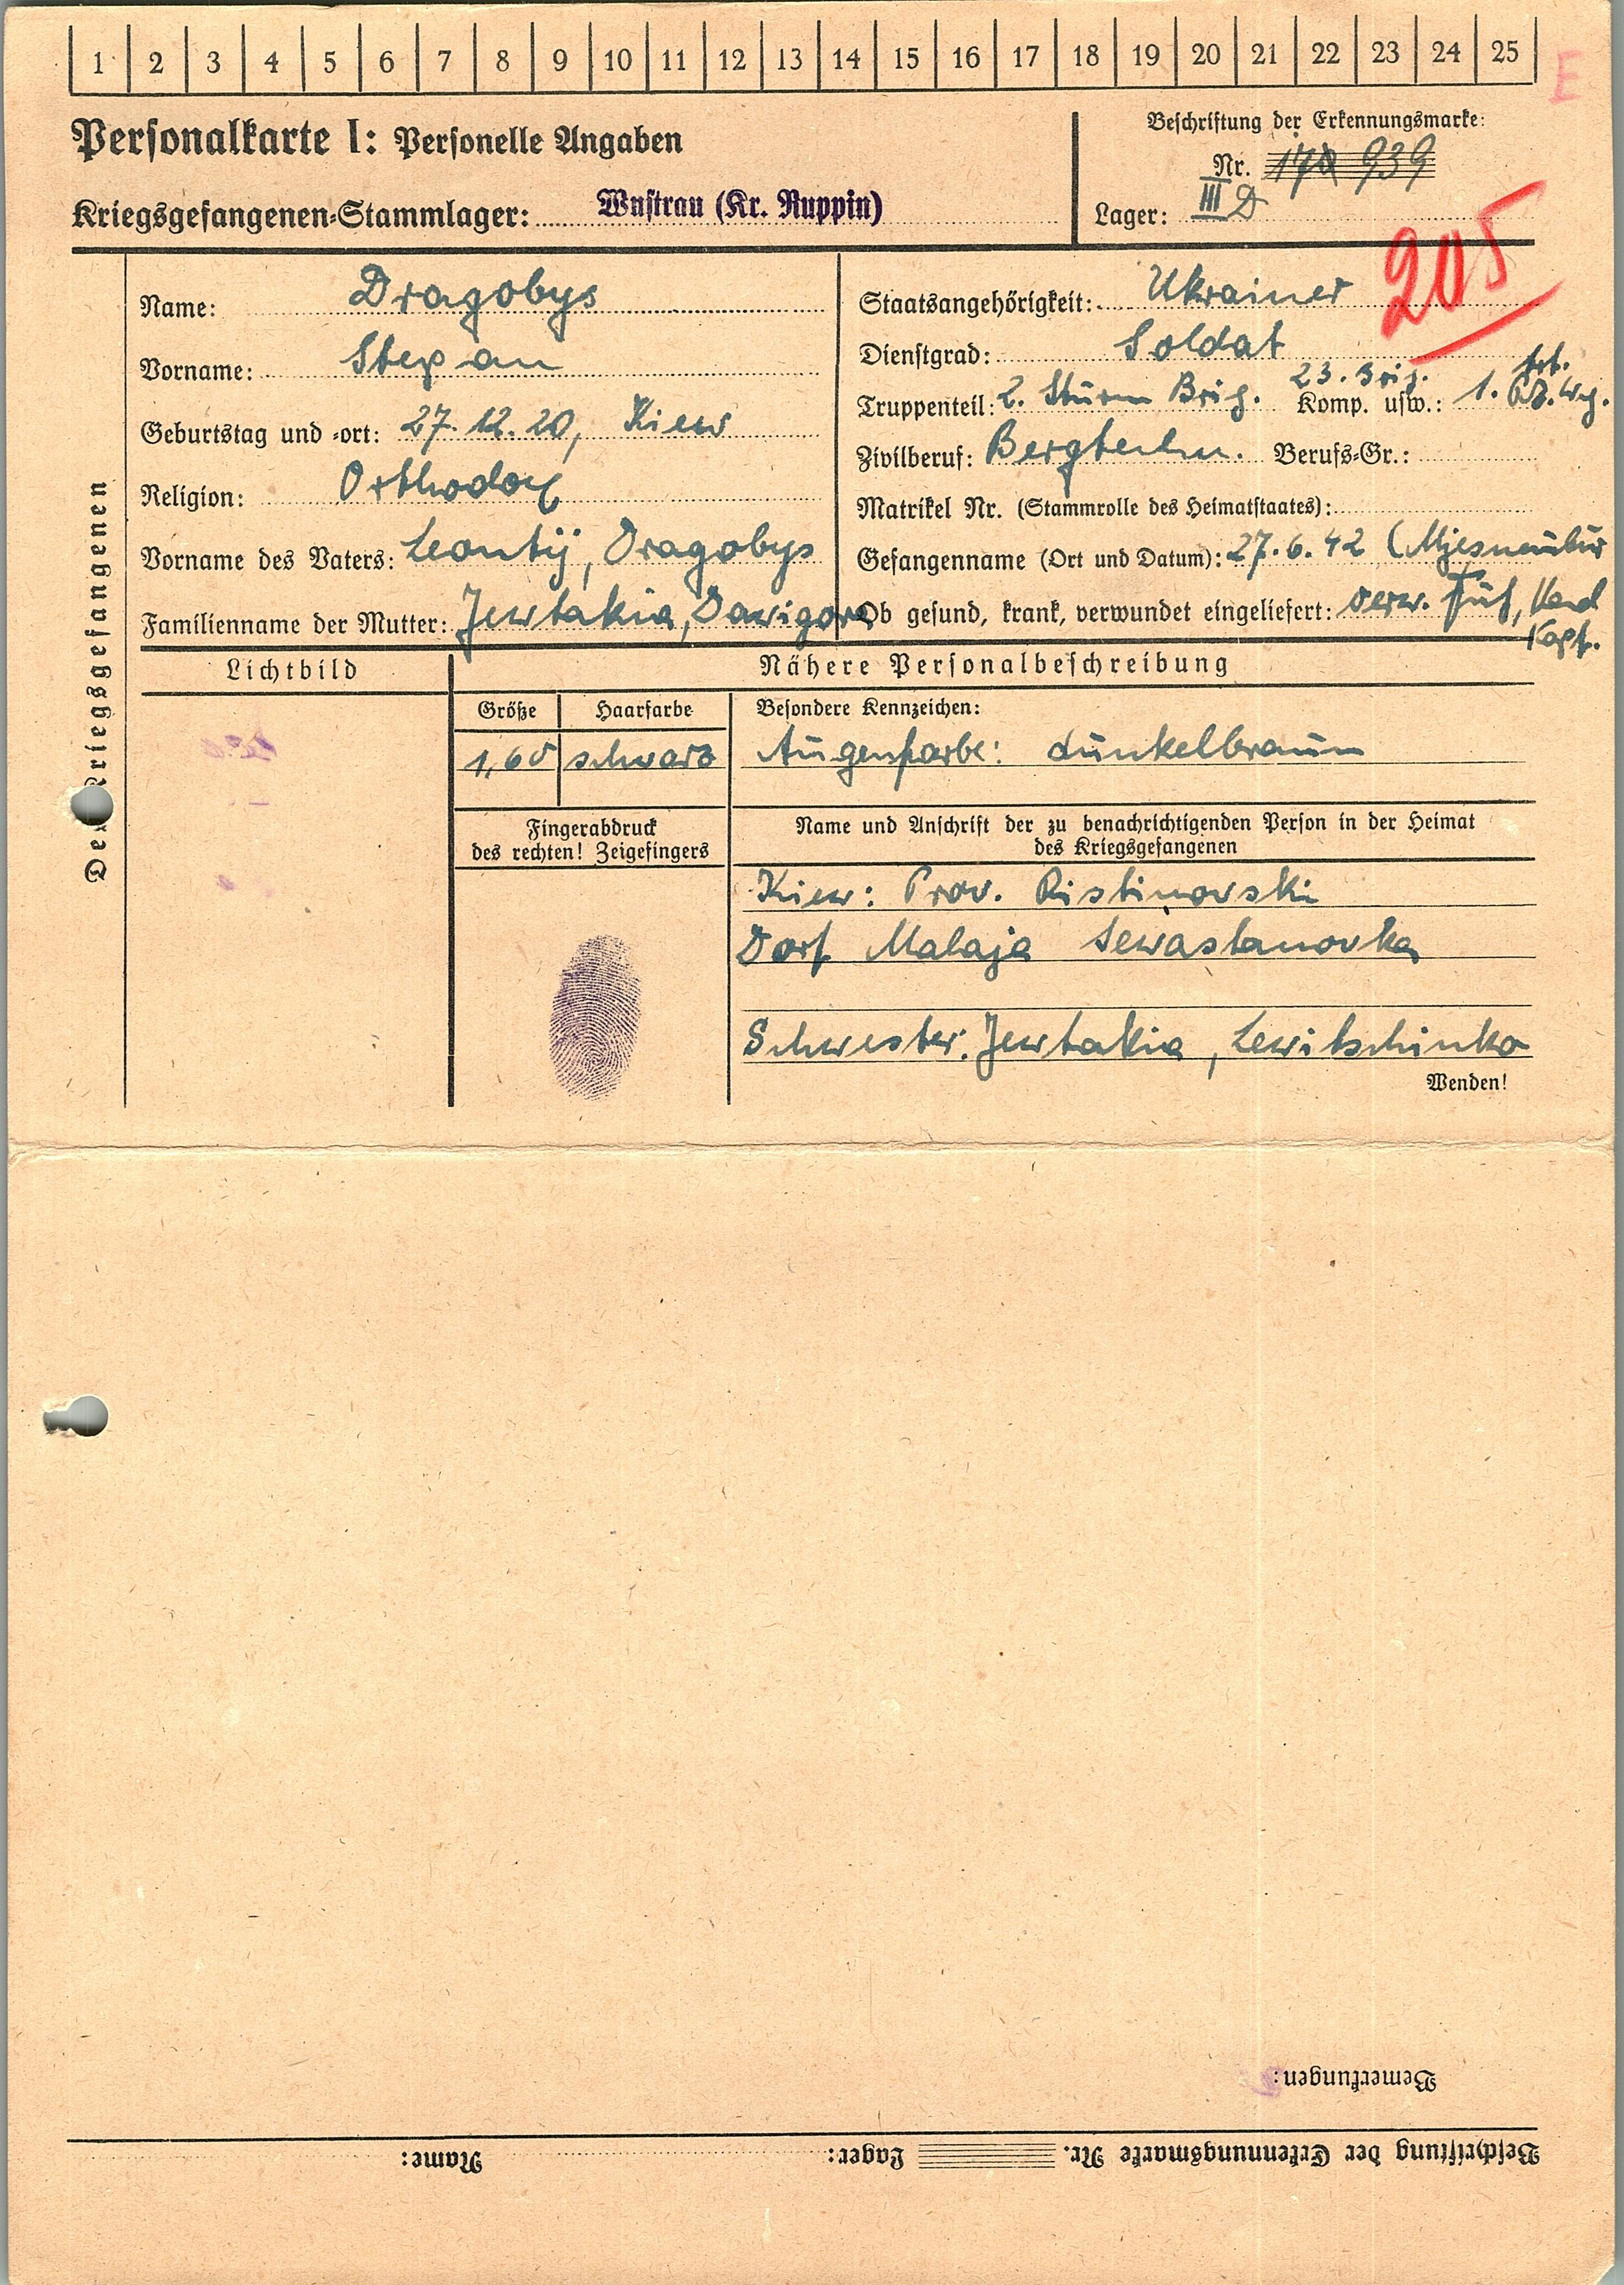 1 2 3 4 5 6 7 8 9 10 11 12 13 14 15 16 17 18 19 20 21 22 23 24 25
E
Personalkarte I: Personelle Angaben
Beschriftung der Erkennungsmarke:
Nr. 939
Kriegsgefangenen-Stammlager: Wustrau (Kr. Ruppin)
Lager: III D
205
Des Kriegsgefangenen
Name: Dragobys
Vorname: Stepan
Geburtstag und -ort: 27.12.20, Kiew
Religion: Orthodox
Vorname des Vaters: Leontij, Dragobys
Familienname der Mutter: Jewtakia, Dawigora
Staatsangehörigkeit: Ukrainer
Dienstgrad: Soldat
Truppenteil: 2. Sturm Brig. 23. Brig. Komp. usw.: 1.
Zivilberuf: Berufs-Gr.:
Matrikel Nr. (Stammrolle des Heimatstaates):
Gefangenname (Ort und Datum): 27.6.42
Ob gesund, krank, verwundet eingeliefert: verw. Fuß,
Kopf.
Lichtbild
Nähere Personalbeschreibung
Größe Haarfarbe Besondere Kennzeichen:
1,60 schwarz Augenfarbe: dunkelbraun
Fingerabdruck
des rechten! Zeigefingers
Name und Anschrift der zu benachrichtigenden Person in der Heimat
des Kriegsgefangenen
Kiew: Prov. Ristinovski
Dorf Malaja Sewastanovka
Schwester: Jewtakia, Lewitschinko
Wenden!
Bemerkungen:
Beschriftung der Erkennungsmarke Nr. Lager: Name: